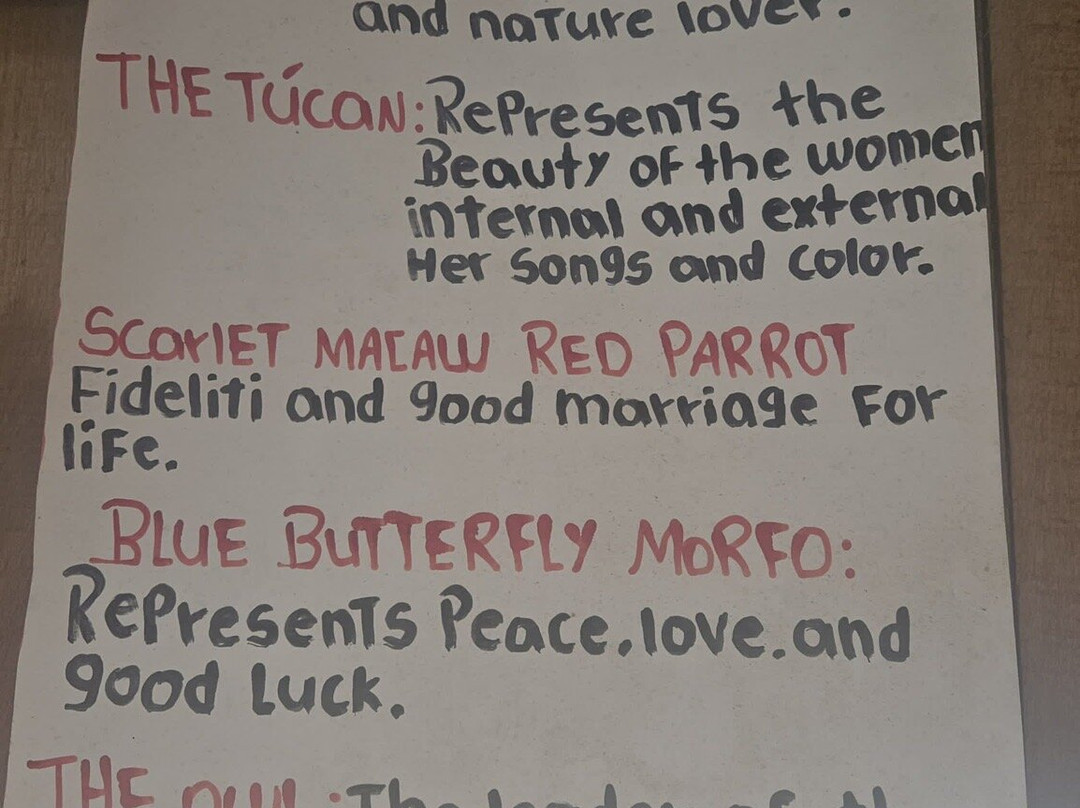 and nature lover.
THE TÚCAN: Represents the
Beauty of the women
internal and external
Her songs and color.
Scarlet MACAW RED PARROT
Fideliti and good marriage For
liFe.
BLUE BUTTERFLY MORFO:
Represents Peace. love. and
good Luck.
THE OWL: The leader of th